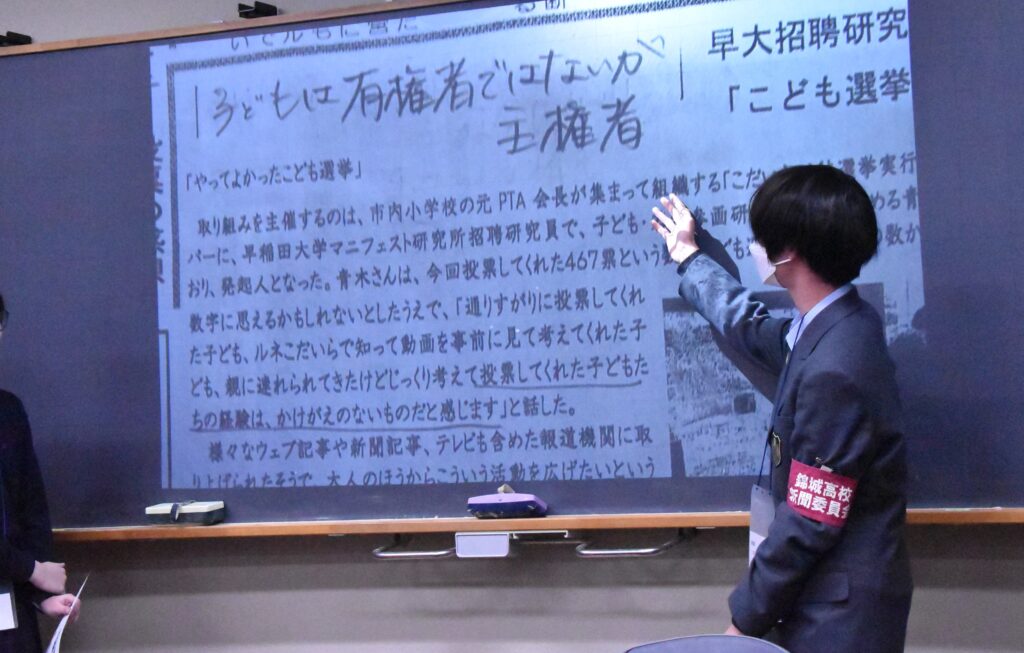 子どもは有権者ではないが
主権者
早大招聘研究
「こども選挙
「やってよかったこども選挙」
取り組みを主催するのは、市内小学校の元PTA会長が集まって組織する「こだい 選挙実行
バーに、早稲田大学マニフェスト研究所招聘研究員で、子ども・ 計画研 める青
おり、発起人となった。青木さんは、今回投票してくれた467票という
数字に思えるかもしれないとしたうえで、「通りすがりに投票してくれ
た子ども、ルネこだいらで知って動画を事前に見て考えてくれた子
ども、親に連れられてきたけどじっくり考えて投票してくれた子どもた
ちの経験は、かけがえのないものだと感じます」と話した。
様々なウェブ記事や新聞記事、テレビも含めた報道機関に取
り上げられたそうで、大人のほうからこういう活動を広げたいという
錦城高校
新聞委員会